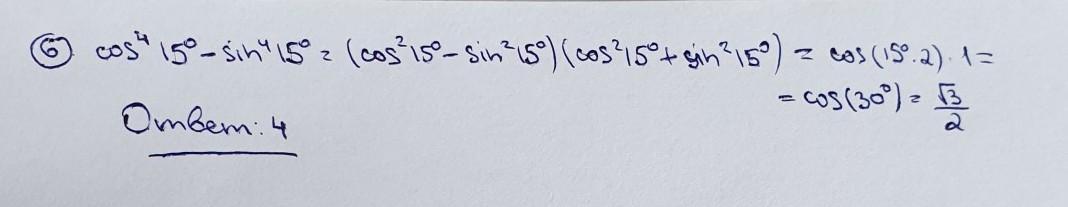 ⑥ cos⁴15° - sin⁴15° = (cos²15° - sin²15°)(cos²15° + sin²15°) = cos(15°·2)·1 =
= cos(30°) = √3/2
Ответ: 4